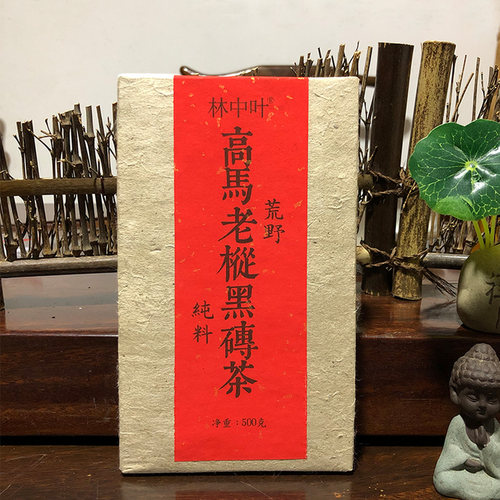 林中叶®
高馬老樅黑磚茶
荒野
純料
净重：500克